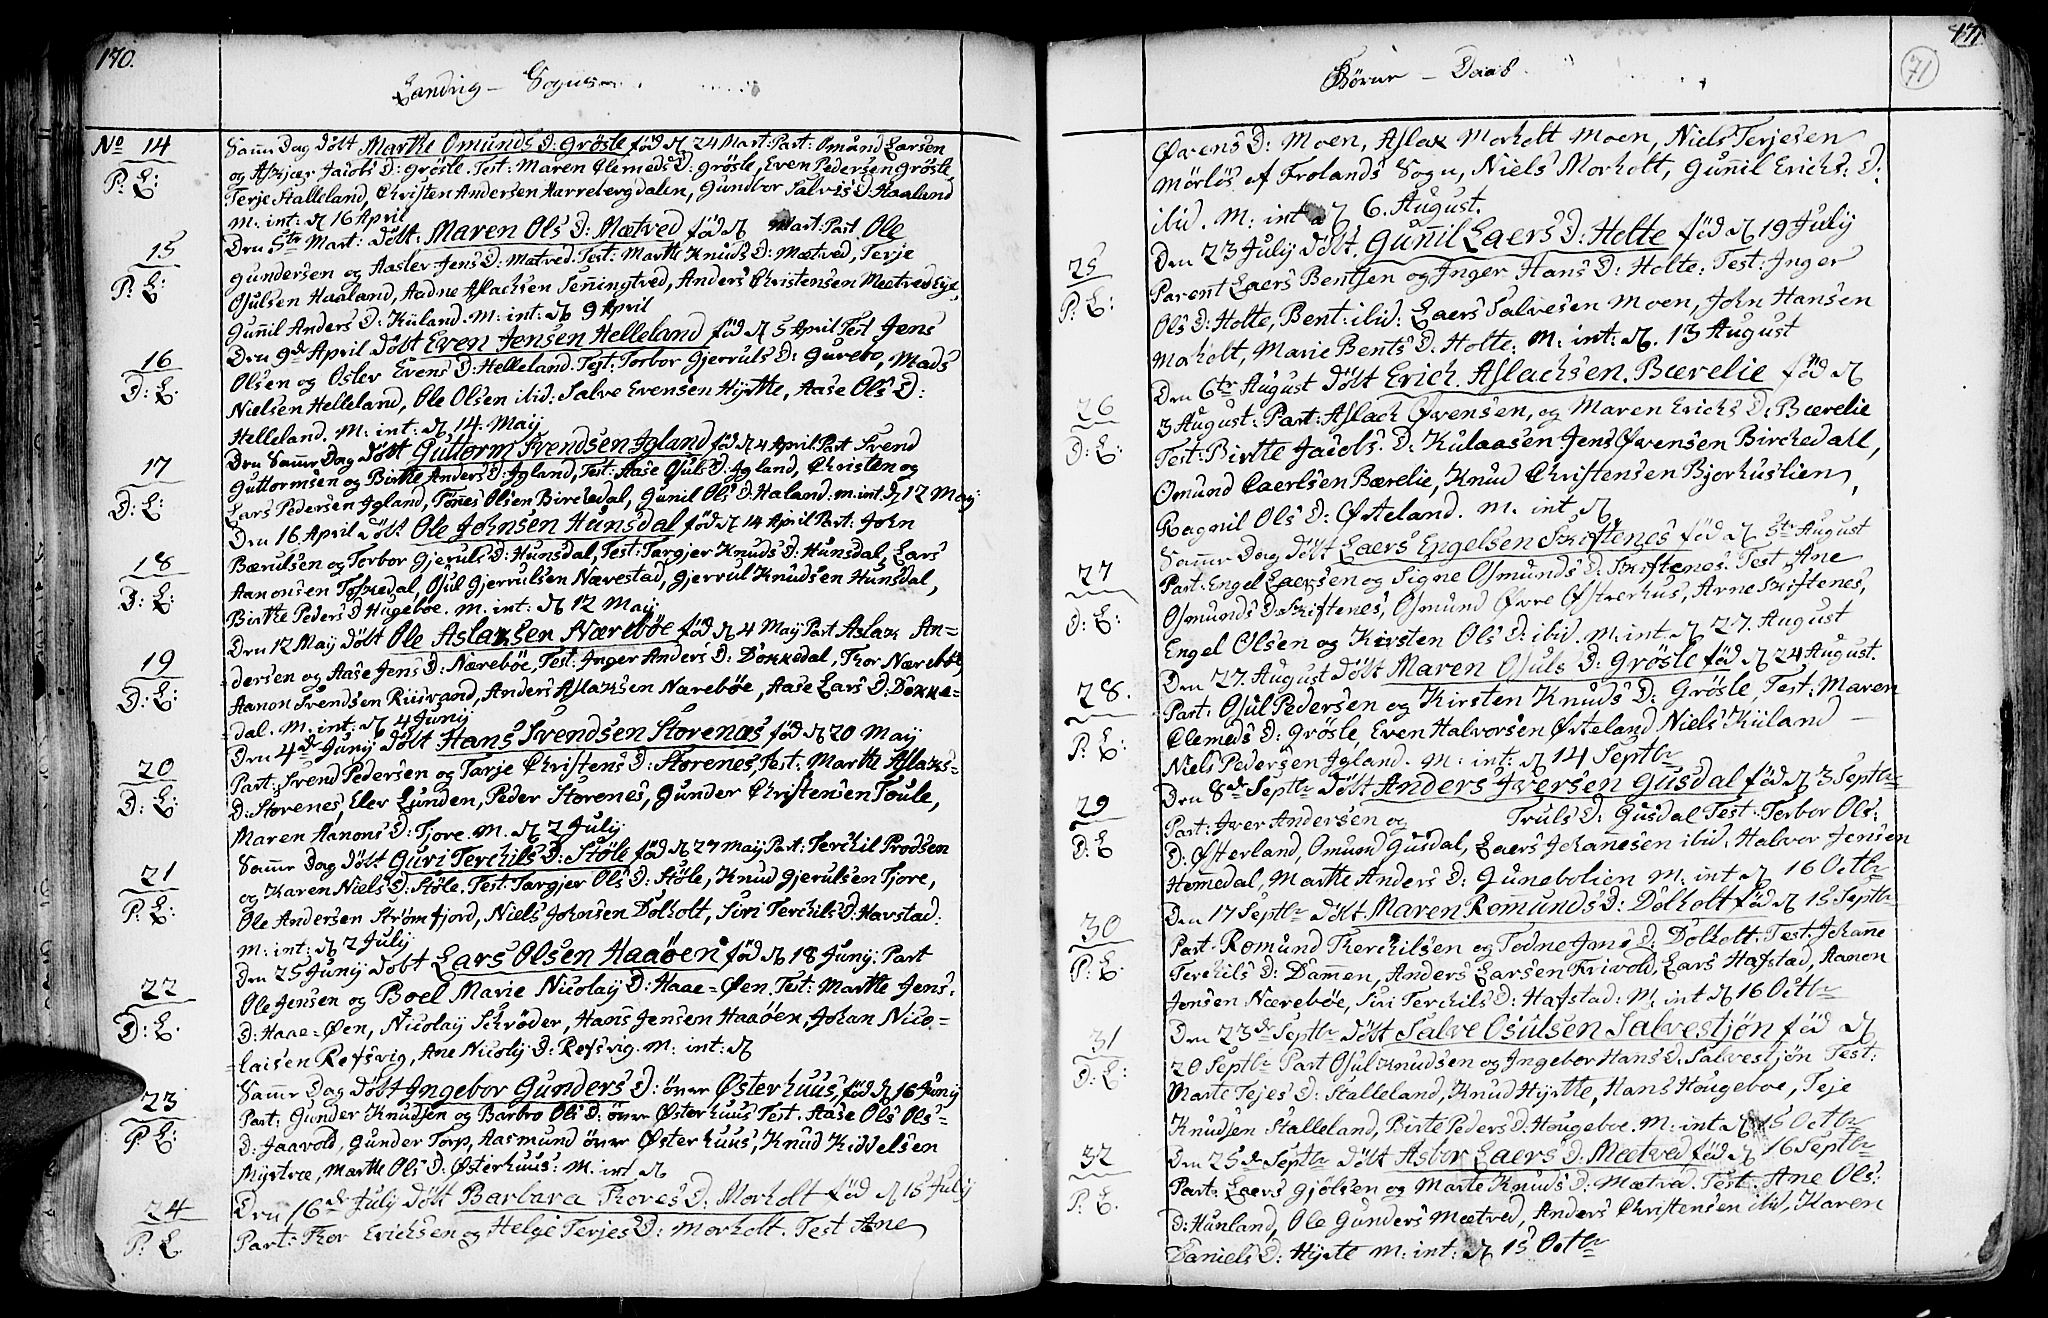 170.
Landvig – Sogns
No 14
P: E:
Samr Dag döbt Marthe Omunds D: Grösle föd d 24 Mart: Part: Omund Larsen
og Askjær Jacobs D: Grösle. Test: Maren Clemeds D: Grösle, Even Pedersen Grösle
Terje Stalleland, Christen Andersen Harrebergdalen, Gunbor Salvis D: Haaland
M: int: d 16 April
15
P: E:
Den 5te Mart: döbt: Maren Ols D: Mætved föd d Mart: Part Ole
Gundersen og Aaslev Jens D: Mætved. Test: Marthe Knuds D: Mætved, Terje
Osulsen Haaland, Aadne Aslachsen Senningtved, Anders Christensen Mætved
Gunil Anders D: Küland. M: int: d 9 April
16
D: E:
Den 9de April döbt Even Jensen Helleland föd d 5 April Test Jens
Olsen og Oslev Evens D: Helleland. Test: Torbor Gjeruls D: Gurebo, Mads
Nielsen Helleland, Ole Olsen ibid: Salve Evensen Hyrtte, Aase Ols D:
Helleland. M: int: d 14. May
17
D: E:
Den Samr Dag döbt Guttorm Svendsen Igland föd d 4 April Part Svend
Guttormsen og Birthe Anders D: Igland, Test: Aase Osuls D: Igland, Christen og
Lars Pedersen Igland, Tönes Olsen Birchedal, Gunil Ols D: Haland: m. int. d 12 May:
18
D: E:
Den 16 April döbt Ole Johnsen Hunsdal föd d 14 April Part: John
Bærulsen og Torbor Gjeruls D: Hunsdal, Test: Targjer Knuds D: Hunsdal, Lars
Aanonsen Toskedal, Osul Gjerrulsen Nævestad, Gjerrul Knudsen Hunsdal,
Birthe Peders D Hugeböe. m. int: d 12 May
19
D: E:
Den 12 May döbt Ole Aslaksen Næreböe föd d 4 May Part Aslak An=
=dersen og Aase Jens D: Næreböe, Test: Inger Anders D: Dokkedal, Thor Næreböe
Aanon Svendsen Riisvand, Anders Aslaksen Narebôe, Aase Lars D: Dokke=
=dal. M. int: d 4 Junij
20
D: E:
Den 4de Junij döbt Hans Svendsen Storenæs föd d 20 May
Part: Svend Pedersen og Tarje Christens D: Storenes, Test: Marthe Aslaks=
D: Storenes, Elev Lunden, Peder Storenes, Gunder Christensen Foule,
Maren Aanons D: Tjore. M. d 2 July
21
P: E:
Samr Dag döbt Guri Terchils D: Stöle föd d 27 May Part: Terchil Prodsen
og Karen Niels D: Stöle. Test: Targjer Ols D: Stöle, Knud Gjerulsen Tjore,
Ole Andersen Strömfjord, Niels Johnsen Dolholt, Siri Terchils D: Havstad:
M: int: d 2 July
22
D: E.
Den 25 Junij döbt Lars Olsen Haaöen föd d 18 Junij: Part
Ole Jensen og Boel Marie Nicolaij D: Haae=Öen. Test: Marthe Jens:
D: Haae=Öen, Nicolaij Schröder, Hans Jensen Haaöen, Johan Nico,=
=laisen Refsvig, Ane Nicolij D: Refsvig. M: int: d
23
P E:
Samr Dag döbt Ingebor Gunders D: över Österhuus, föd d 16 Junij
Part: Gunder Knudsen og Barbro Ols D: över Österhuus Test. Aase Ols Ols=
D: Jaavold, Gunder Torp, Aasmund över Österhuus, Knud Kiddelsen
Myrtvæ, Marthe Ols D: Österhuus: M: int d
24
P: E.
Den 16de July döbt Barbara Thores D: Morholt föd d 15 July
Part: Thor Erichsen og Helge Terjes D: Morholt. Test Ane
171
71
Börne – Daab
Övens D: Moen, Aslak Morholt Moen, Niels Terjesen
Mörlös af Frolands Sogn, Niels Morholt, Gunil Erichs: D:
ibid. M: int d 6. August.
25
P: E:
Den 23 July döbt. Gunil Laers D: Holte föd d 19 July
Parent Laers Bentsen og Inger Hans D: Holte: Test: Inger
Ols D: Holte, Bent: ibid: Laers Salvesen Moen, John Hansen
Morholt, Marie Bents D. Holte: M: int: d. 13 August
26
D: E:
Den 6te August döbt Erich Aslachsen. Bærelie föd d
3 August: Part: Aslach Övensen, og Maren Erichs D: Bærelie
Test: Birthe Jacobs: D: Kulaasen Jens Övensen Birchedall,
Omund Caerlsen Bærelie, Knud Christensen Bjorhuslien,
Ragnil Ols D: Östeland. M. int d
27
D: E:
Samr Dag döbt Laers Engelsen Skiftenes föd d 5te August
Part: Engel Laersen og Signe Osmunds D: Skiftenes: Test Ane
Osmunds D: Skiftenes, Osmund Övre Östrerhus, Arne Skiftenes,
Engel Olsen og Kirsten Ols D: ibid. M: int. d 27. August
28.
P: E:
Den 27. August döbt Maren Osuls D: Grösle föd d 24 August.
Part: Osul Pedersen og Kirsten Knuds D: Grösle, Test: Maren
Clemeds D: Grösle, Even Halvorsen Östeland Niels Küland –
Niels Pedersen Igland. M: int: d 14 Septbr
29
D: E
Den 8de Septbr döbt Anders Iversen Gusdal föd d 3 Septbr
Part: Iver Andersen og Truls D: Gusdal Test. Torbor Ols:
D: Österland, Omund Gusdal, Laers Johanesen ibid. Halvor Jensen
Homedal, Marthe Anders D: Gunebolien M: int d 16 Octbr
30
P: E:
Den 17 Septbr döbt Maren Romunds D: Dolholt föd d 15 Septbr
Part. Romund Therchilsen og Todne Jens D: Dolholt: Test: Johane
Terchils D: Dammen, Anders Larsen Frivold, Lars Hafstad, Aanon
Jensen Nærebôe, Siri Terchils D: Hafstad: M: int d 16 Octbr
31
D: E:
Den 23de Septbr döbt Salve Osulsen Salvestjön, föd d
20 Septbr Part Osul Knudsen og Ingebor Hans D: Salvestjön Test:
Marte Tejes D: Stalleland, Knud Hyrtte, Hans Hougeboe, Teje
Knudsen Stalleland, Birte Peders D: Hougeboe. M: int d 15 Octbr
32
P: E.
Den 25de Septbr döbt Asbor Laers D: Mætved föd d 16 Septbr
Part: Laers Gjölsen og Marte Knuds D: Mætved. Test. Ane Ols:
D: Hunland, Ole Gunders Mætved, Anders Christensen ibid, Karen
Daniels D: Hyrte M: int: d 15 Octbr